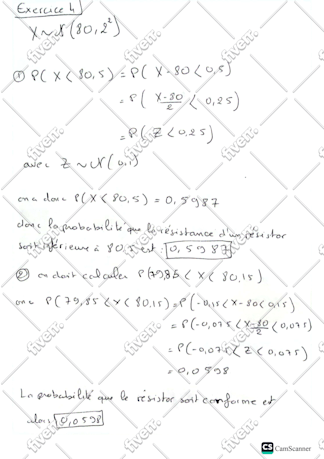 Exercice 4
X ~ N(80, 2²)
① P(X < 80,5) = P(X-80 < 0,5)
= P(X-80/2 < 0,25)
= P(Z < 0,25)
avec Z ~ N(0,1)
on a donc P(X < 80,5) = 0,5987
donc la probabilité que la résistance d'un résistor
soit inférieure à 80,5 est : 0,5987
② on doit calculer P(79,85 < X < 80,15)
on a P(79,85 < X < 80,15) = P(-0,15 < X-80 < 0,15)
= P(-0,075 < X-80/2 < 0,075)
= P(-0,075 < Z < 0,075)
= 0,0598
La probabilité que le résistor soit conforme est
alors 0,0598
fiverr.
CS CamScanner